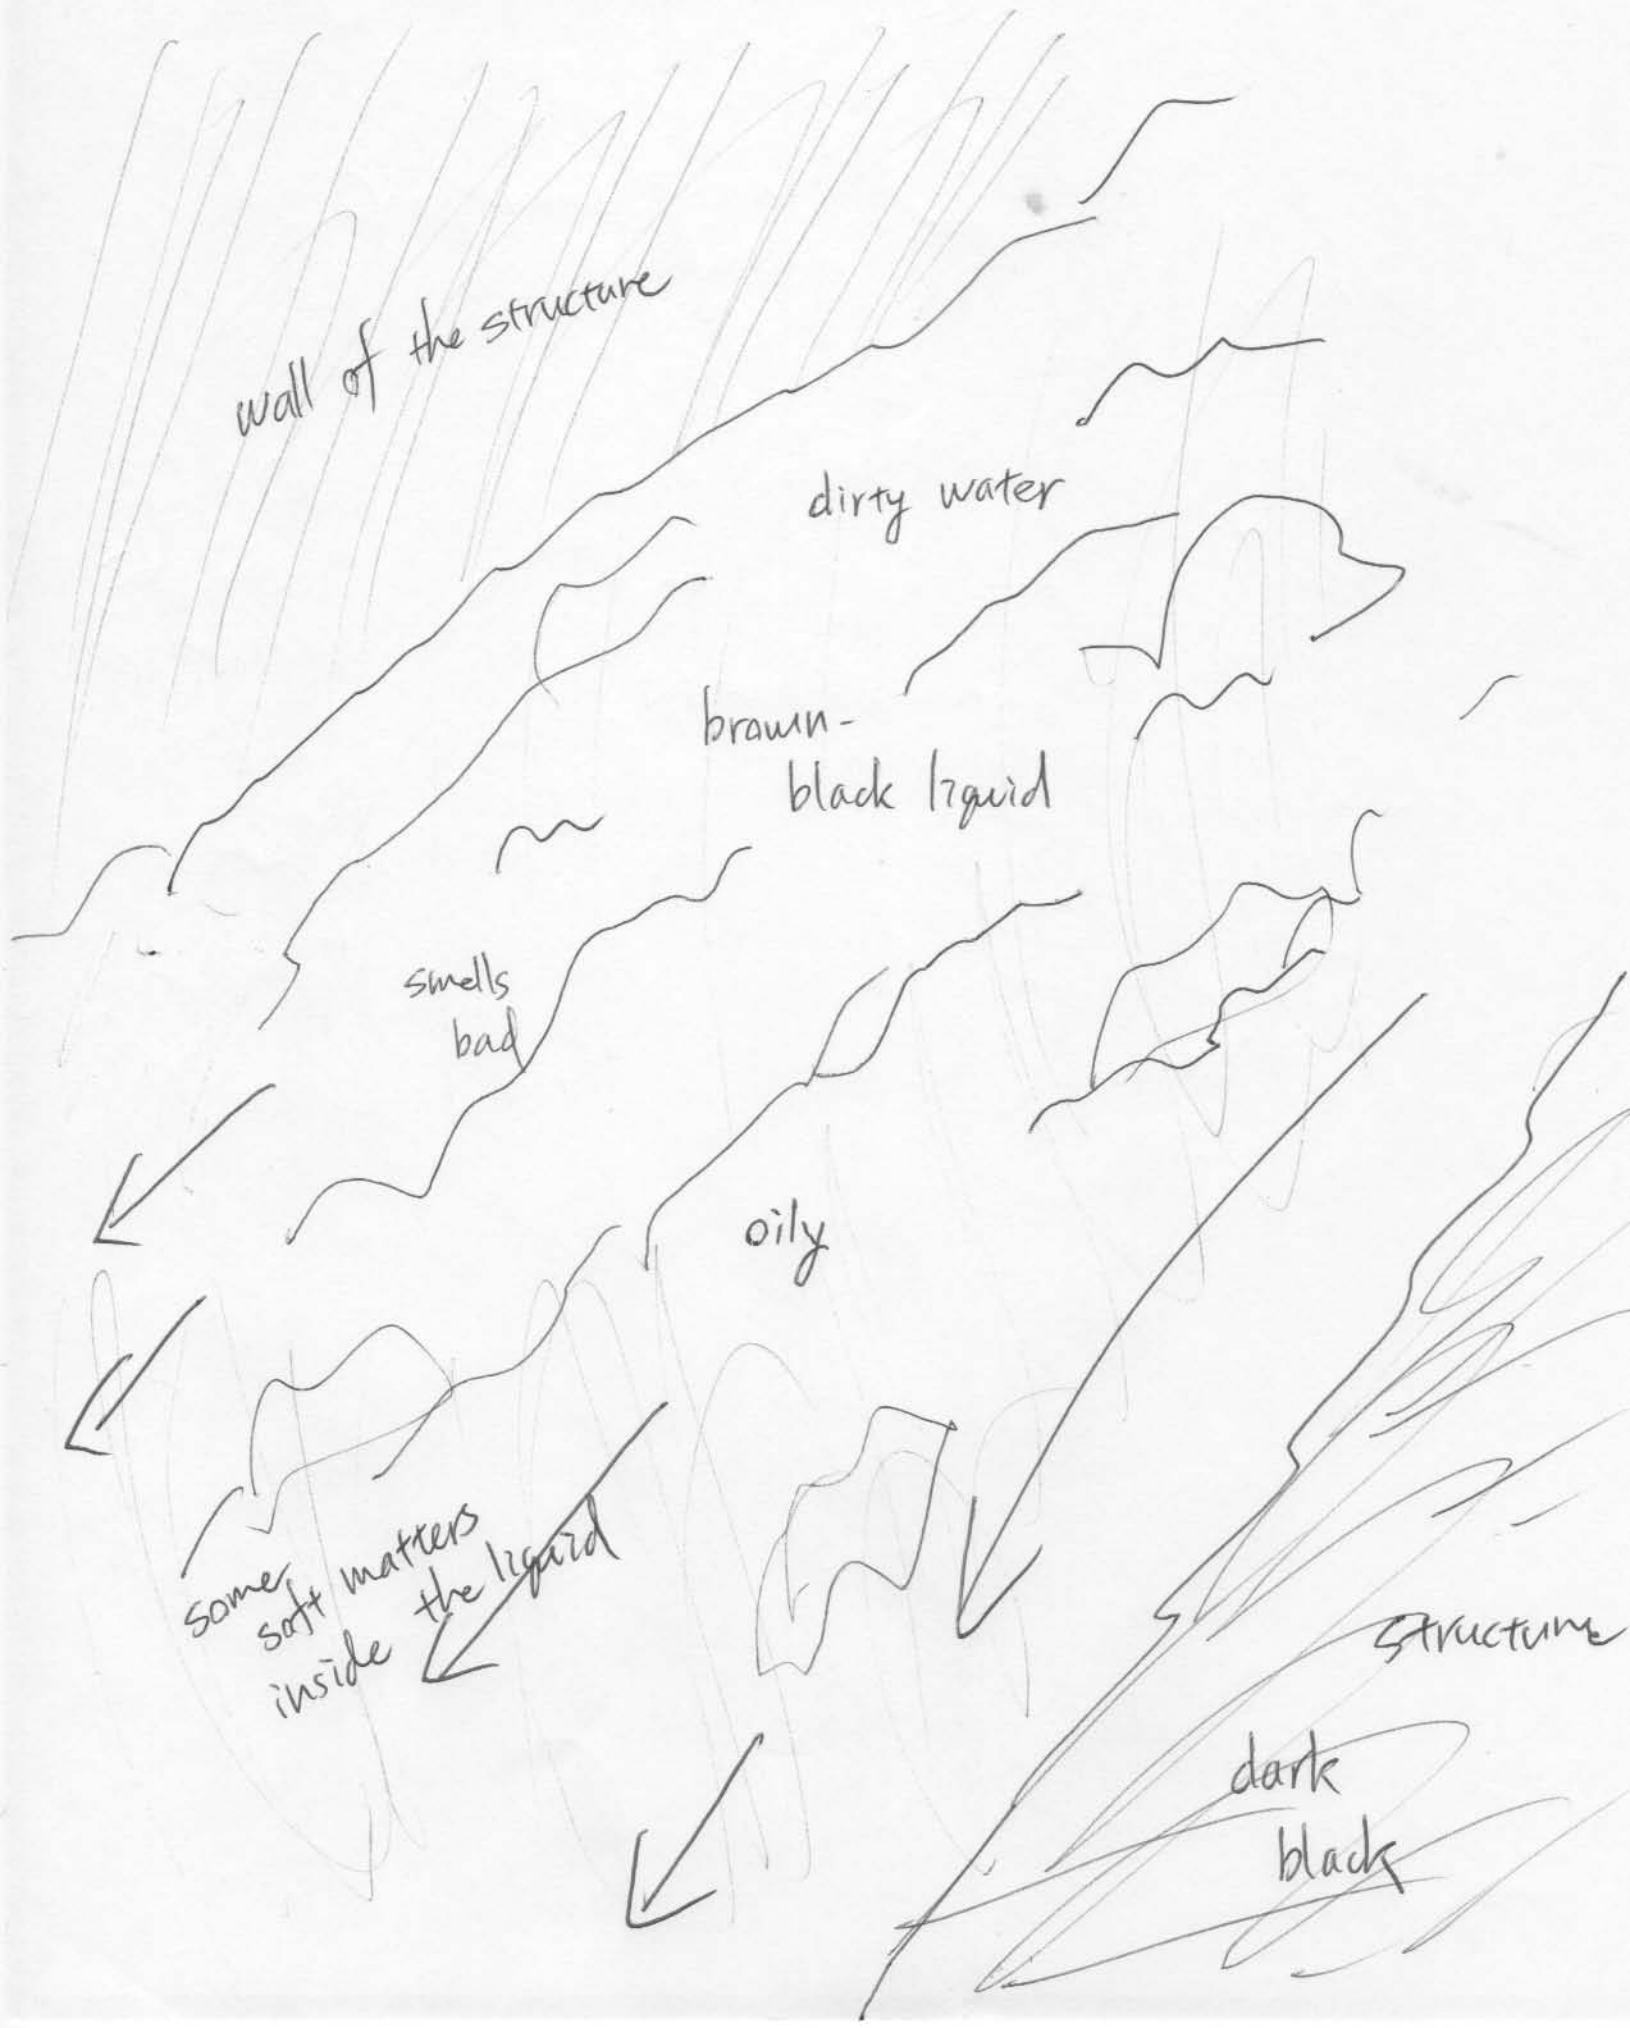 wall of the structure
dirty water
brown-
black liquid
smells
bad
oily
some
soft matters
inside the liquid
structure
dark
black